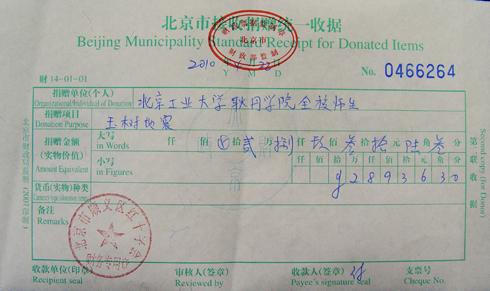 北京市接收捐赠统一收据
Beijing Municipality Standard Receipt for Donated Items
北京市
财政部监制
2010 4 22
Y M D
No. 0466264
财 14-01-01
捐赠单位(个人) 北京工业大学耿丹学院全校师生
Organizational/Individual of Donation
捐赠项目 玉树地震
Donation Purpose
捐赠金额 大写 仟 佰 拾 贰 万 捌 仟 玖 佰 叁 拾 元 陆 角 叁 分
(实物价值) in Words
小写 仟 佰 拾 万 仟 佰 拾 元 角 分
Amount Equivalent in Figures 2 8 9 3 6 3 0
货币(实物)种类
备注
Remarks
北京市顺义区红十字会
财务专用章
收款单位(印章) 审核人(签章) 收款人(签章) 支票号
Recipient seal Reviewed by Payee's signature seal Cheque No.
第二联 收据
Second copy: Receipt